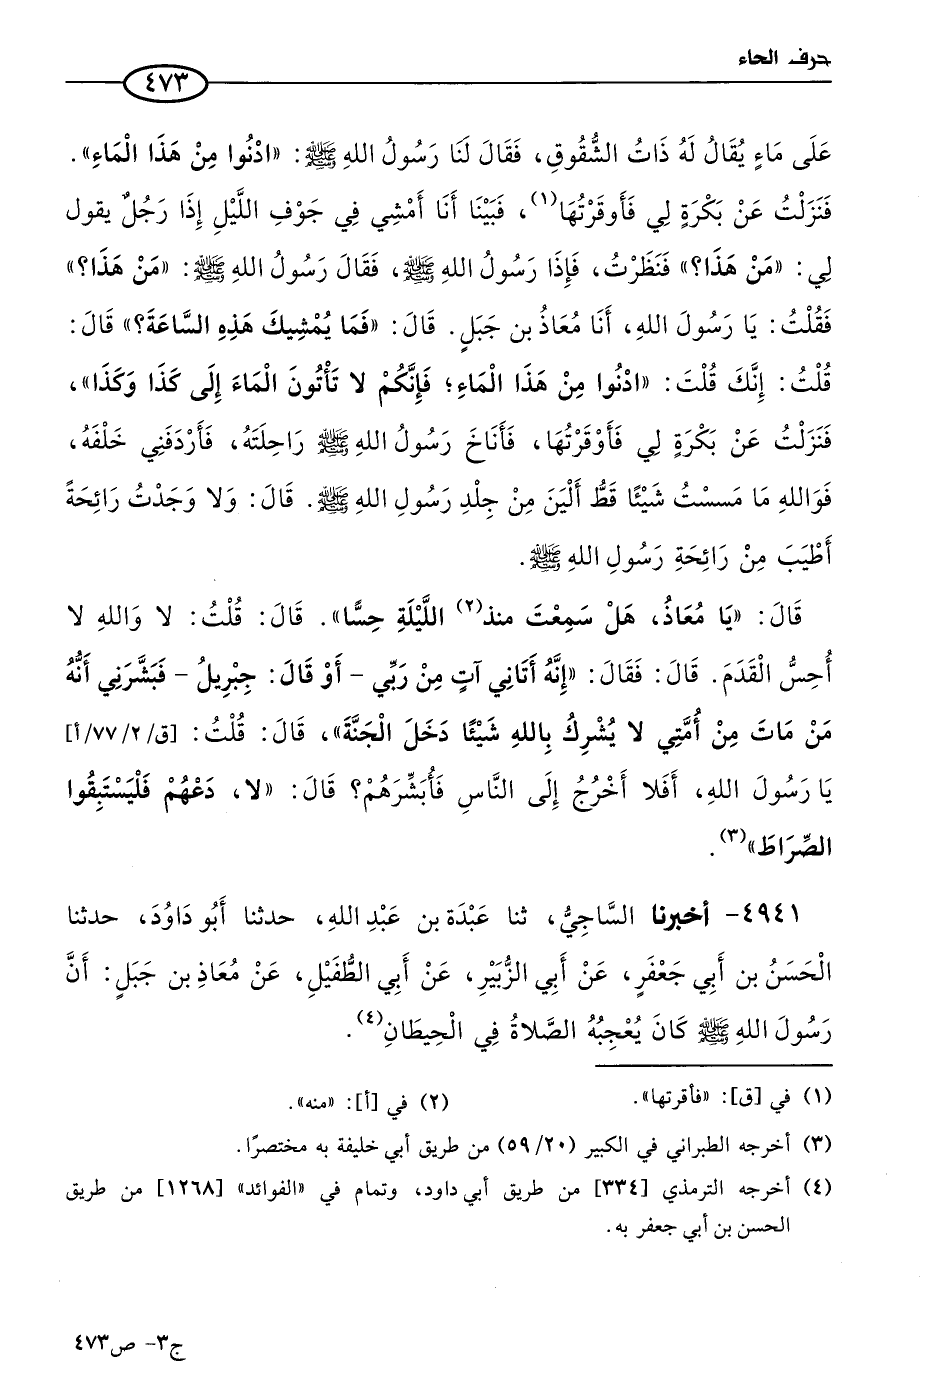 حرف الحاء
٤٧٣
عَلَى مَاءٍ يُقَالُ لَهُ ذَاتُ الشُّقُوقِ، فَقَالَ لَنَا رَسُولُ اللهِ ﷺ: «ادْنُوا مِنْ هَذَا الْمَاءِ».
فَنَزَلْتُ عَنْ بَكْرَةٍ لِي فَأَوقَرْتُهَا(١)، فَبَيْنَا أَنَا أَمْشِي فِي جَوْفِ اللَّيْلِ إِذَا رَجُلٌ يقول
لِي: «مَنْ هَذَا؟» فَنَظَرْتُ، فَإِذَا رَسُولُ اللهِ ﷺ، فَقَالَ رَسُولُ اللهِ ﷺ: «مَنْ هَذَا؟»
فَقُلْتُ: يَا رَسُولَ اللهِ، أَنَا مُعَاذُ بن جَبَلٍ. قَالَ: «فَمَا يُمْشِيكَ هَذِهِ السَّاعَةَ؟» قَالَ:
قُلْتُ: إِنَّكَ قُلْتَ: «ادْنُوا مِنْ هَذَا الْمَاءِ؛ فَإِنَّكُمْ لا تَأْتُونَ الْمَاءَ إِلَى كَذَا وَكَذَا»،
فَنَزَلْتُ عَنْ بَكْرَةٍ لِي فَأَوْقَرْتُهَا، فَأَنَاخَ رَسُولُ اللهِ ﷺ رَاحِلَتَهُ، فَأَرْدَفَنِي خَلْفَهُ،
فَوَاللهِ مَا مَسسْتُ شَيْئًا قَطُّ أَلْيَنَ مِنْ جِلْدِ رَسُولِ اللهِ ﷺ. قَالَ: وَلا وَجَدْتُ رَائِحَةً
أَطْيَبَ مِنْ رَائِحَةِ رَسُولِ اللهِ ﷺ.
قَالَ: «يَا مُعَاذُ، هَلْ سَمِعْتَ منذ(٢) اللَّيْلَةِ حِسًّا». قَالَ: قُلْتُ: لا وَاللهِ لا
أُحِسُّ الْقَدَمَ. قَالَ: فَقَالَ: «إِنَّهُ أَتَانِي آتٍ مِنْ رَبِّي - أَوْ قَالَ: جِبْرِيلُ - فَبَشَّرَنِي أَنَّهُ
مَنْ مَاتَ مِنْ أُمَّتِي لا يُشْرِكُ بِاللهِ شَيْئًا دَخَلَ الْجَنَّةَ»، قَالَ: قُلْتُ: [ق/٢/٧٧/أ]
يَا رَسُولَ اللهِ، أَفَلا أَخْرُجُ إِلَى النَّاسِ فَأُبَشِّرَهُمْ؟ قَالَ: «لا، دَعْهُمْ فَلْيَسْتَبِقُوا
الصِّرَاطَ»(٣).
٤٩٤١- أخبرنا السَّاجِيُّ، ثنا عَبْدَة بن عَبْدِ اللهِ، حدثنا أَبُو دَاوُدَ، حدثنا
الْحَسَنُ بن أَبِي جَعْفَرٍ، عَنْ أَبِي الزُّبَيْرِ، عَنْ أَبِي الطُّفَيْلِ، عَنْ مُعَاذِ بن جَبَلٍ: أَنَّ
رَسُولَ اللهِ ﷺ كَانَ يُعْجِبُهُ الصَّلاةُ فِي الْحِيطَانِ(٤).
(١) في [ق]: «فأقرتها». (٢) في [أ]: «منه».
(٣) أخرجه الطبراني في الكبير (٥٩/٢٠) من طريق أبي خليفة به مختصرًا.
(٤) أخرجه الترمذي [٣٣٤] من طريق أبي داود، وتمام في «الفوائد» [١٢٦٨] من طريق
الحسن بن أبي جعفر به.
ج٣- ص٤٧٣